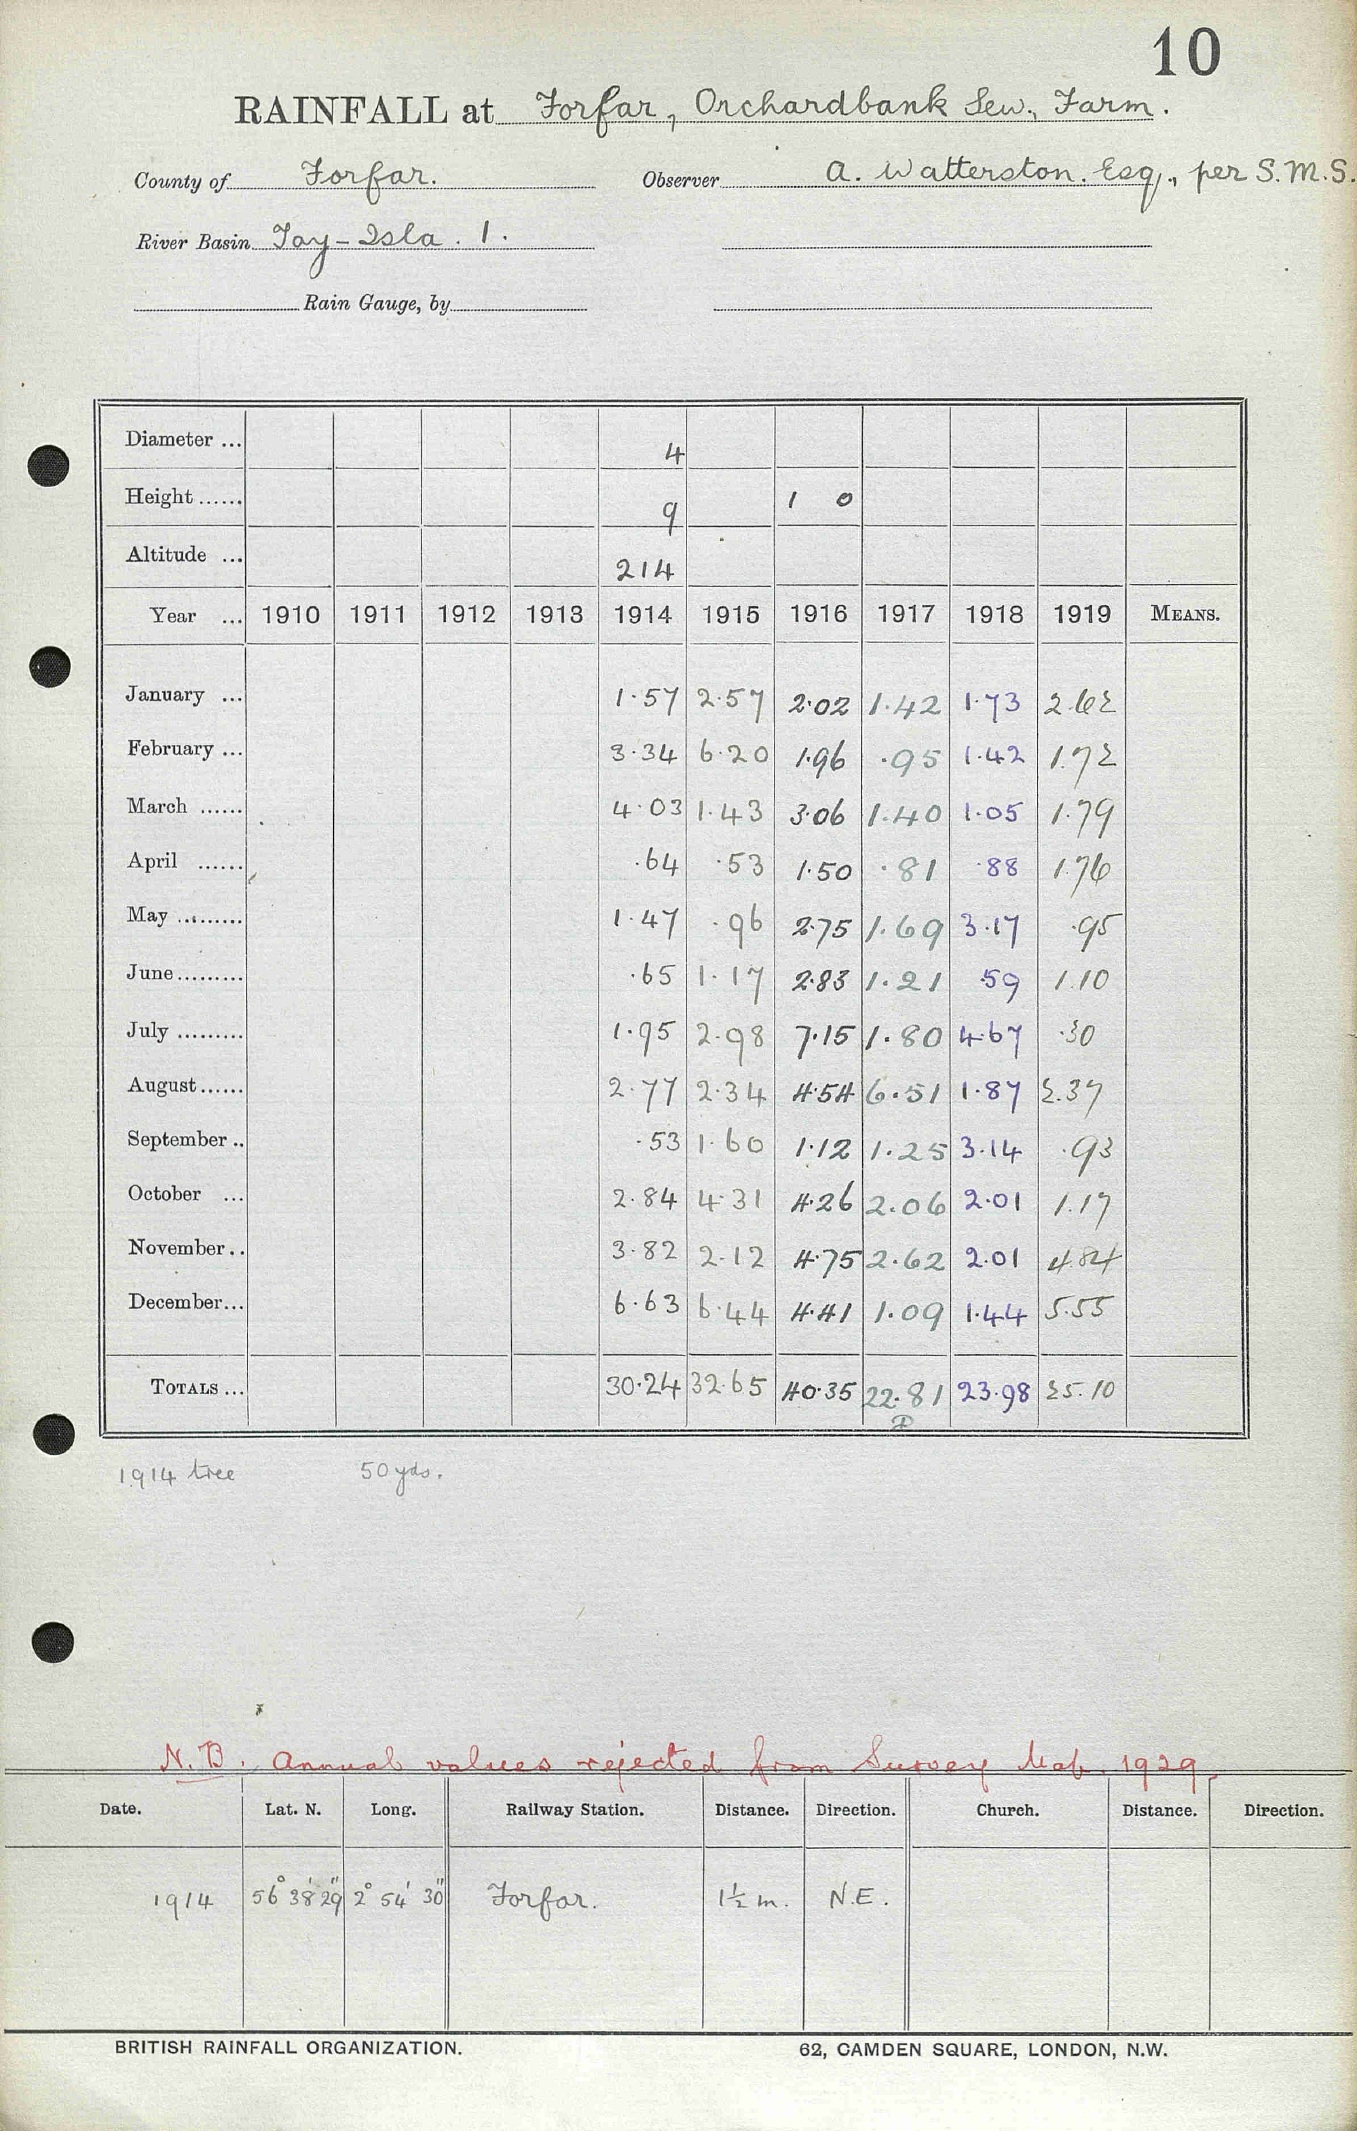 10
RAINFALL at Forfar, Orchardbank Sew. Farm.
County of Forfar. Observer A. Watterston. Esq., per S.M.S.
River Basin Tay-Isla. 1.
Rain Gauge, by
Diameter ... 4
Height ...... 9 1 0
Altitude ... 214
Year ... 1910 1911 1912 1913 1914 1915 1916 1917 1918 1919 MEANS.
January ... 1.57 2.57 2.02 1.42 1.73 2.62
February ... 3.34 6.20 1.96 .95 1.42 1.72
March ...... 4.03 1.43 3.06 1.40 1.05 1.79
April ...... .64 .53 1.50 .81 .88 1.76
May ......... 1.47 .96 2.75 1.69 3.17 .95
June ......... .65 1.17 2.83 1.21 .59 1.10
July ......... 1.95 2.98 7.15 1.80 4.67 .30
August ...... 2.77 2.34 4.54 6.51 1.87 2.37
September .. .53 1.60 1.12 1.25 3.14 .93
October ... 2.84 4.31 4.26 2.06 2.01 1.17
November .. 3.82 2.12 4.75 2.62 2.01 4.84
December ... 6.63 6.44 4.41 1.09 1.44 5.55
TOTALS ... 30.24 32.65 40.35 22.81 23.98 25.10
1914 tree 50 yds.
N.B. Annual values rejected from Survey Map. 1929.
Date. Lat. N. Long. Railway Station. Distance. Direction. Church. Distance. Direction.
1914 56° 38' 29" 2° 54' 30" Forfar. 1½ m. N.E.
BRITISH RAINFALL ORGANIZATION. 62, CAMDEN SQUARE, LONDON, N.W.